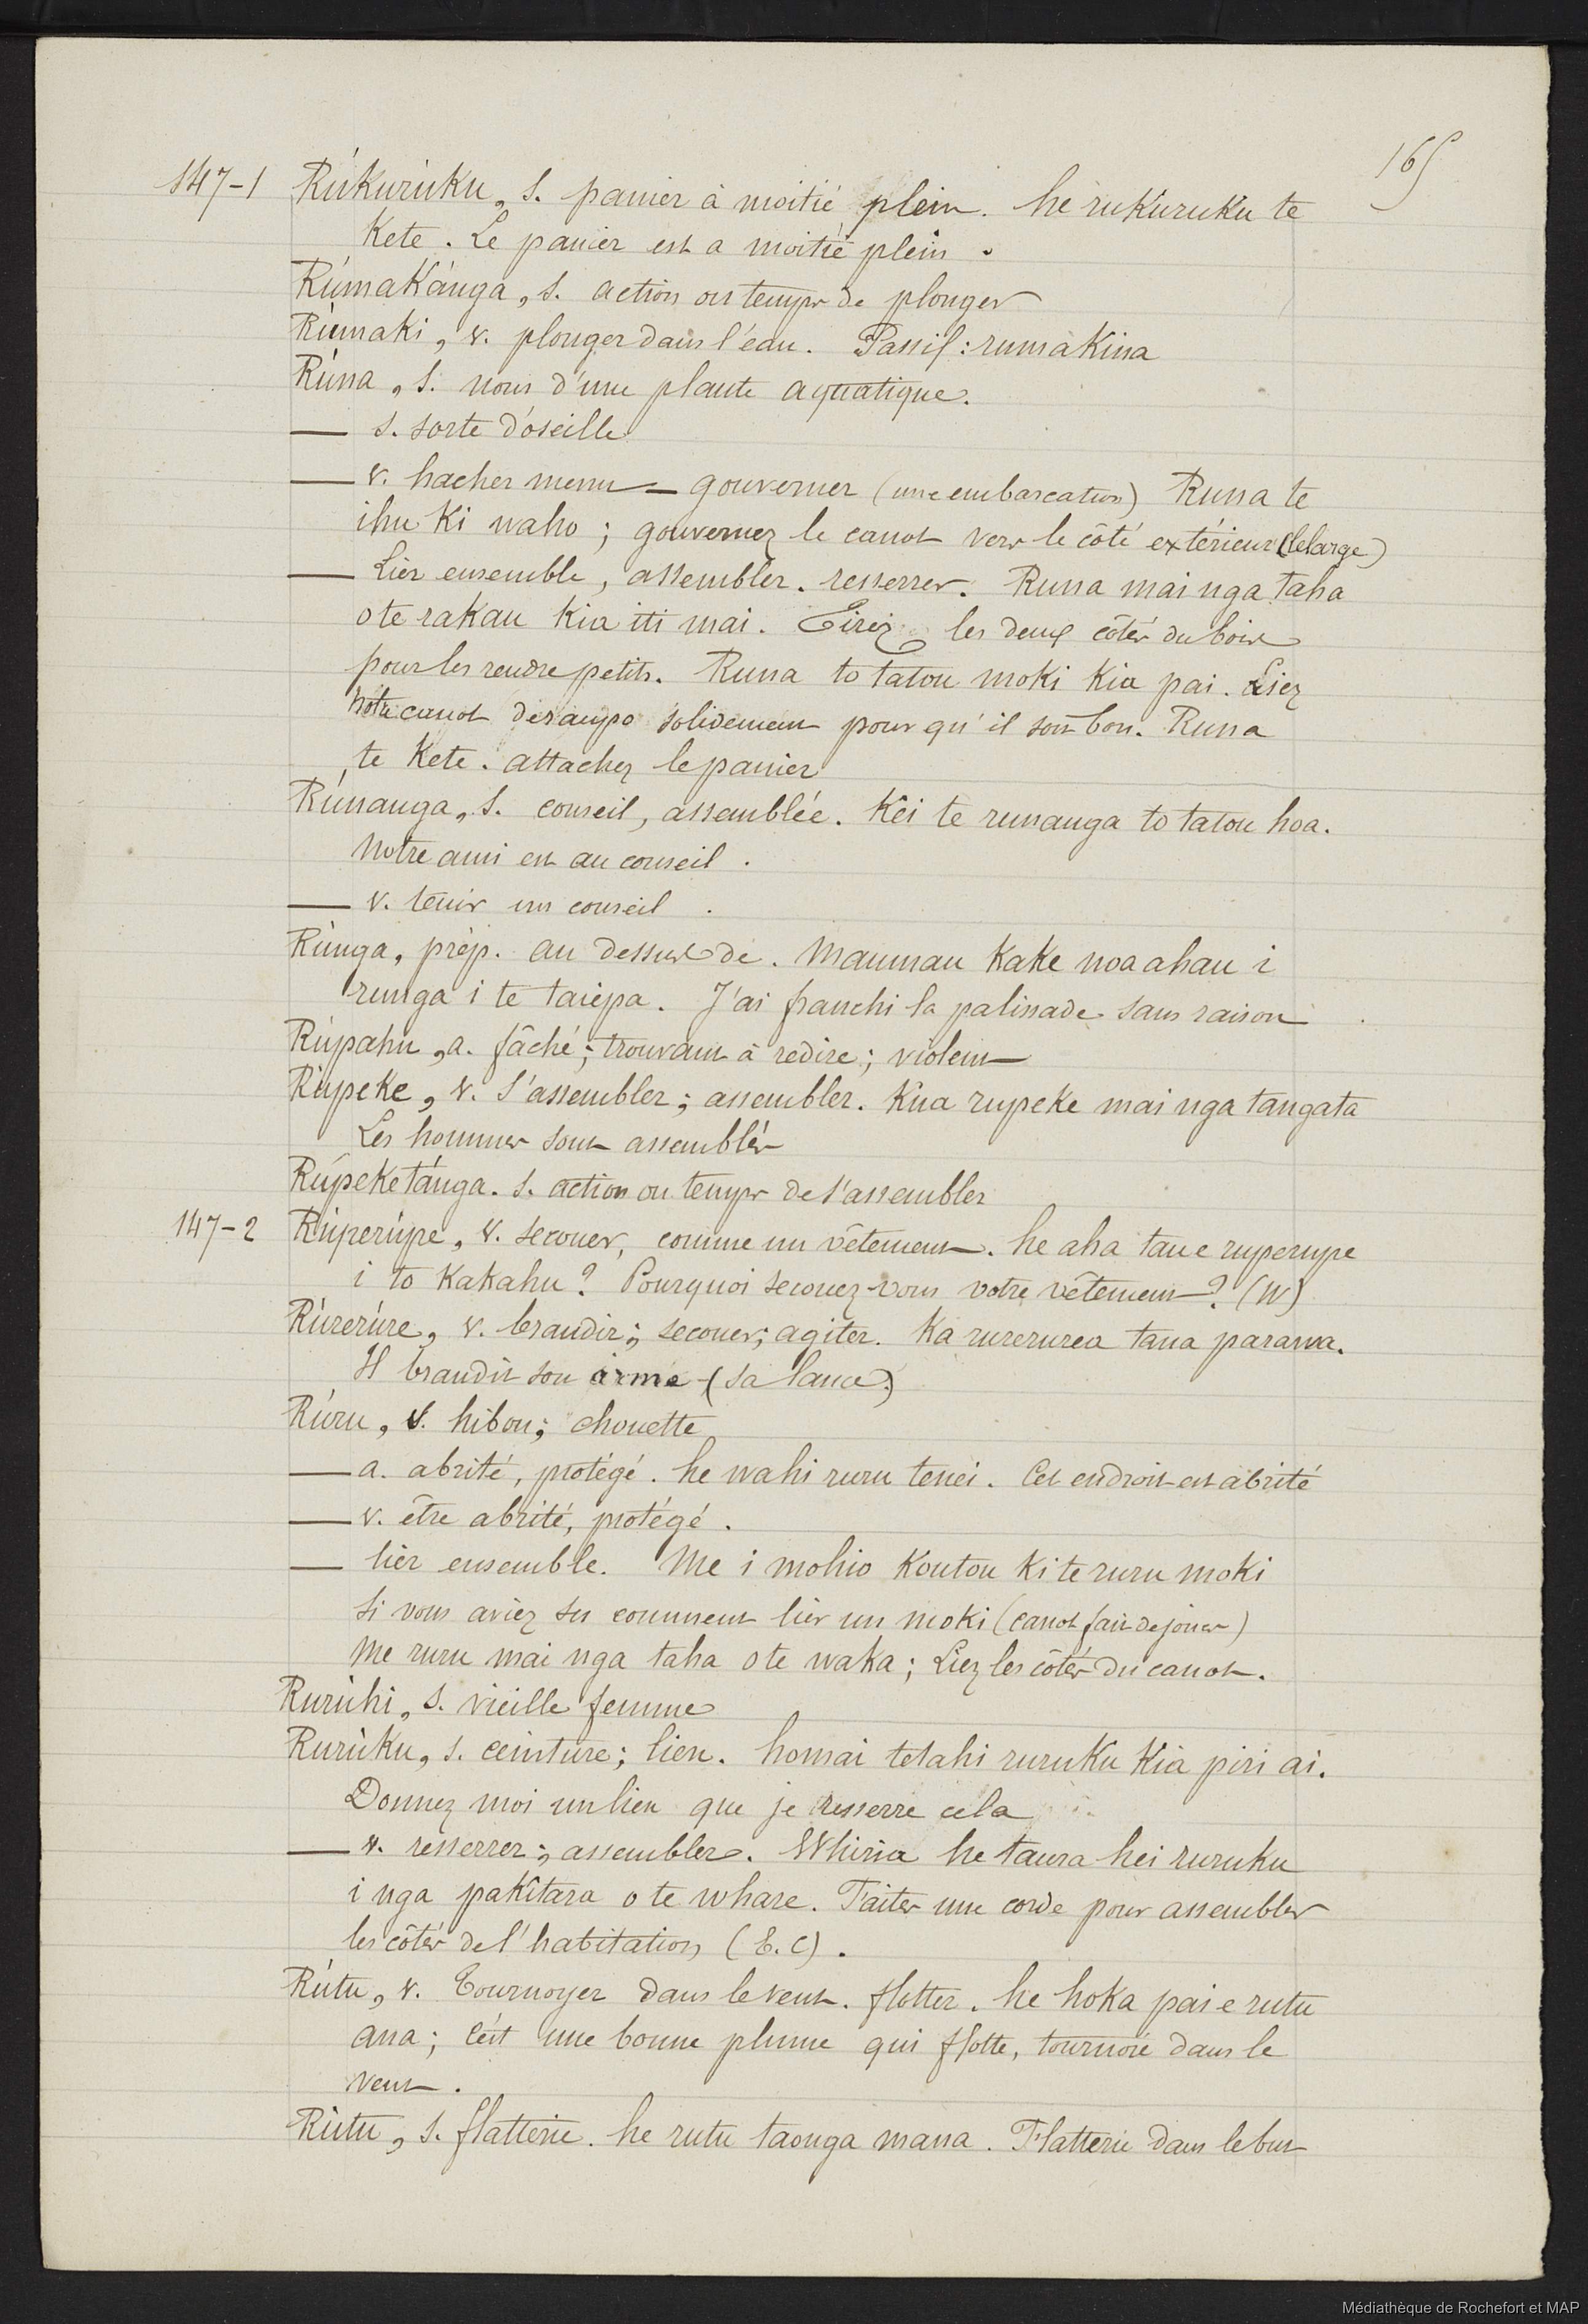 165
147-1 Rúkurúku, s. panier à moitié plein. he rukuruku te
Kete. Le panier est a moitié plein.
Rúmakánga, s. action ou temps de plonger
Rúmaki, v. plonger dans l'éau. Passif: rumàkina
Rúna, s. nom d'une plante aquatique.
— s. sorte d'oseille
— v. hacher menu — gouverner (une embarcation) Runa te
ihu Ki waho; gouvernez le canot vers le côté extérieur (le large)
— Lier ensemble, assembler. resserrer. Runa mai nga taha
o te rakau Kia iti mai. Tirez les deux côtés du bois
pour les rendre petits. Runa to tatou moki Kia pai. Liez
notre canot deraupo solidement pour qu'il soit bon. Runa
te Kete. attachez le panier
Rúnanga, s. conseil, assemblée. Kei te runanga to tatou hoa.
Notre ami est au conseil.
— v. tenir un conseil.
Rúnga, prép. au dessus de. Maumau Kake noa ahau i
runga i te taiepa. J'ai franchi la palissade sans raison
Rúpahu, a. fâché; trouvant à redire; violent
Rúpeke, v. s'assembler; assembler. Kua rupeke mai nga tangata
Les hommes sont assemblés
Rúpeketánga. s. action ou temps de s'assembler
147-2 Rúperúpe, v. secouer, comme un vêtement. he aha tau e ruperupe
i to Kakahu? Pourquoi secouez-vous votre vêtement? (W)
Rúrerúre, v. brandir; secouer; agiter. Ka rurerurea tana parawa.
Il brandit son arme (sa lance)
Rúru, s. hibou; chouette
— a. abrité, protégé. he wahi ruru tenei. Cet endroit est abrité
— v. être abrité, protégé.
— lier ensemble. Me i mohio Koutou Ki te ruru moki
Si vous aviez su comment lier un moki (canot fait de joncs)
Me ruru mai nga taha o te waka; Liez les côtés du canot.
Rurúhi, s. vieille femme
Rurúku, s. ceinture; lien. homai tetahi ruruku Kia piri ai.
Donnez moi un lien que je resserre cela
— v. resserrer; assembler. Whiria he taura hei ruruku
i nga pakitara o te whare. Faites une corde pour assembler
les côtés de l'habitation (E.C).
Rútu, v. Tournoyer dans le vent. flotter. he hoka pai e rutu
ana; c'est une bonne plume qui flotte, tournoie dans le
vent.
Rútu, s. flatterie. he rutu taonga mana. Flatterie dans le but
Médiathèque de Rochefort et MAP